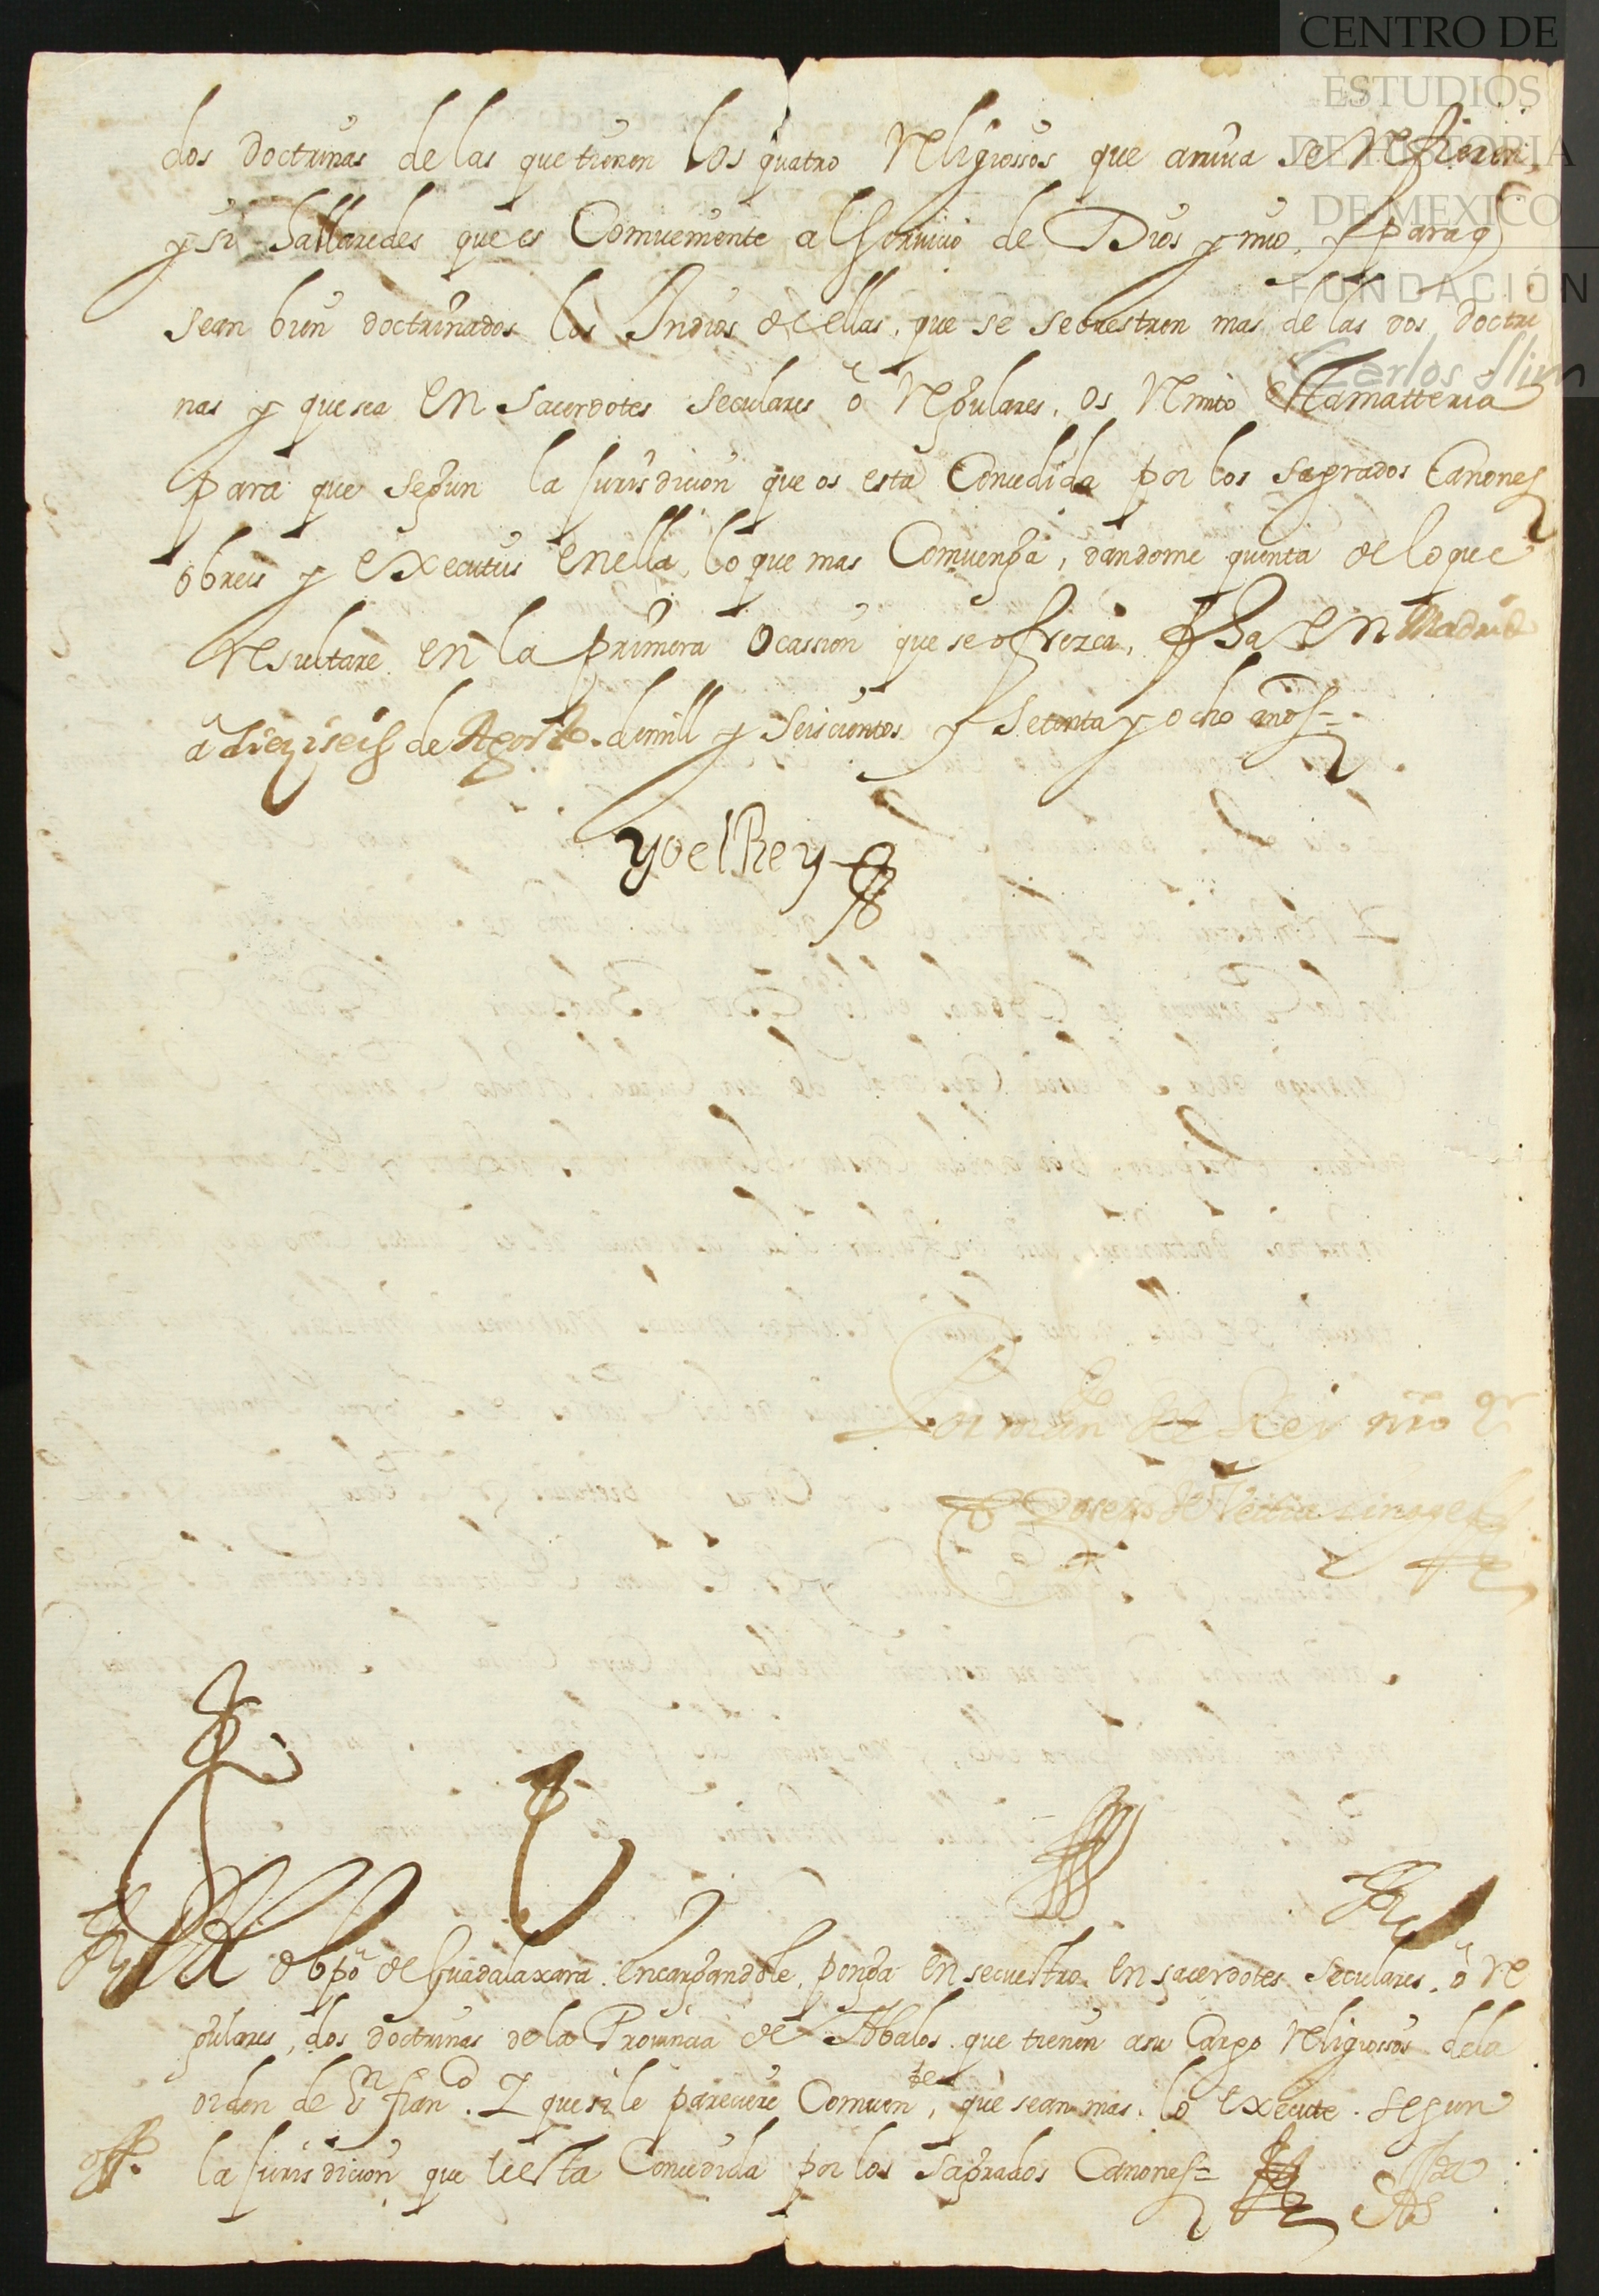 CENTRO DE
ESTUDIOS
DE HISTORIA
DE MEXICO
FUNDACIÓN
Carlos Slim
dos Doctrinas de las que tienen los quatro Religiossos que arriua se Refieren,
y si hallaredes que es Comueniente al seruicio de Dios y mio, y para q
sean bien doctrinados los Indios de ellas, que se sequestren mas de las dos Doctri
nas y que sea en Sacerdotes seculares ó Regulares, os Rimito esta matteria
para que segun la Jurisdicion que os está Concedida por los sagrados Canones
obreis y executeis en ella lo que mas Comuenga, dandome quenta de lo que
resultare en la primera ocassion que se ofrezca, fha en Madrid
á Diez i seis de Agosto de mill y seiscientos y setenta y ocho años=
yo el Rey
Por mdo del Rey nro sr
D Joseph de Veitia Linage
Al obpo de Guadalaxara encargandole ponga en secuestro en sacerdotes seculares ó re
gulares, dos doctrinas de la Prouincia de Abalos que tienen a su Cargo Religiossos de la
orden de Sn franco. I que si le pareciere Comuente, que sean mas lo execute segun
la Jurisdicion que le esta Concedida por los sagrados Canones=